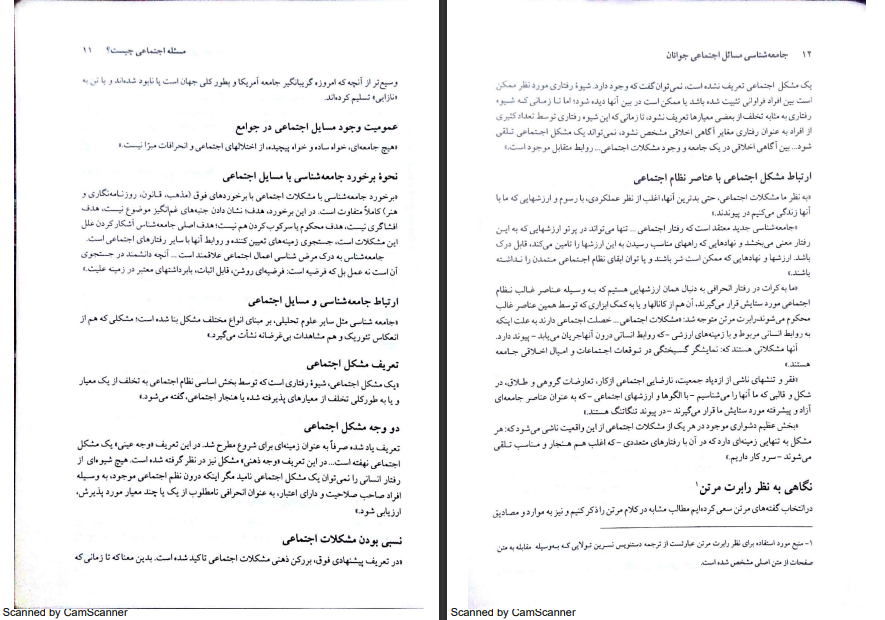 مسئله اجتماعی چیست؟ ۱۱
وسیع‌تر از آنچه که امروزه گریبانگیر جامعه آمریکا و بطور کلی جهان است یا نابود شده‌اند و یا تن به
«نازایی» تسلیم کرده‌اند.
عمومیت وجود مسایل اجتماعی در جوامع
«هیچ جامعه‌ای، خواه ساده و خواه پیچیده، از اختلالهای اجتماعی و انحرافات مبرّا نیست.»
نحوهٔ برخورد جامعه‌شناسی با مسایل اجتماعی
«برخورد جامعه‌شناسی با مشکلات اجتماعی با برخوردهای فوق (مذهب، قانون، روزنامه‌نگاری و
هنر) کاملاً متفاوت است. در این برخورد، هدف؛ نشان دادن جنبه‌های غم‌انگیز موضوع نیست، هدف
افشاگری نیست، هدف محکوم یا سرکوب کردن هم نیست؛ هدف اصلی جامعه‌شناس آشکار کردن علل
این مشکلات است، جستجوی زمینه‌های تعیین کننده و روابط آنها با سایر رفتارهای اجتماعی است.
جامعه‌شناسی به درک مرض شناسی اعمال اجتماعی علاقمند است ... آنچه دانشمند در جستجوی
آن است نه عمل بل که فرضیه است: فرضیه‌ای روشن، قابل اثبات، بابرداشتهای معتبر در زمینه علیت.»
ارتباط جامعه‌شناسی و مسایل اجتماعی
«جامعه شناسی مثل سایر علوم تحلیلی، بر مبنای انواع مختلف مشکل بنا شده است؛ مشکلی که هم از
انعکاس تئوریک و هم مشاهدات بی‌غرضانه نشأت می‌گیرد.»
تعریف مشکل اجتماعی
«یک مشکل اجتماعی، شیوهٔ رفتاری است که توسط بخش اساسی نظام اجتماعی به تخلف از یک معیار
و یا به طورکلی تخلف از معیارهای پذیرفته شده یا هنجار اجتماعی، گفته می‌شود.»
دو وجه مشکل اجتماعی
تعریف یاد شده صرفاً به عنوان زمینه‌ای برای شروع مطرح شد. در این تعریف «وجه عینی» یک مشکل
اجتماعی نهفته است... در این تعریف «وجه ذهنی» مشکل نیز در نظر گرفته شده است. هیچ شیوه‌ای از
رفتار انسانی را نمی‌توان یک مشکل اجتماعی نامید مگر اینکه درون نظم اجتماعی موجود، به وسیله
افراد صاحب صلاحیت و دارای اعتبار، به عنوان انحرافی نامطلوب از یک یا چند معیار مورد پذیرش،
ارزیابی شود.»
نسبی بودن مشکلات اجتماعی
«در تعریف پیشنهادی فوق، بررکن ذهنی مشکلات اجتماعی تاکید شده است. بدین معناکه تا زمانی که
Scanned by CamScanner
۱۲ جامعه‌شناسی مسائل اجتماعی جوانان
یک مشکل اجتماعی تعریف نشده است، نمی‌توان گفت که وجود دارد. شیوهٔ رفتاری مورد نظر ممکن
است بین افراد فراوانی تثبیت شده باشد یا ممکن است در بین آنها دیده شود؛ اما تا زمانی که شیوه
رفتاری به مثابه تخلف از بعضی معیارها تعریف نشود، تا زمانی که این شیوه رفتاری توسط تعداد کثیری
از افراد به عنوان رفتاری مغایر آگاهی اخلاقی مشخص نشود، نمی‌تواند یک مشکل اجتماعی تلقی
شود... بین آگاهی اخلاقی در یک جامعه و وجود مشکلات اجتماعی... روابط متقابل موجود است.»
ارتباط مشکل اجتماعی با عناصر نظام اجتماعی
«به نظر ما مشکلات اجتماعی، حتی بدترین آنها، اغلب از نظر عملکردی، با رسوم و ارزشهایی که ما با
آنها زندگی می‌کنیم در پیوندند.»
«جامعه‌شناسی جدید معتقد است که رفتار اجتماعی ... تنها می‌تواند در پرتو ارزشهایی که به این
رفتار معنی می‌بخشد و نهادهایی که راههای مناسب رسیدن به این ارزشها را تامین می‌کند، قابل درک
باشد. ارزشها و نهادهایی که ممکن است شر باشند و یا توان ابقای نظام اجتماعی متمدن را نداشته
باشند.»
«ما به کرات در رفتار انحرافی به دنبال همان ارزشهایی هستیم که به وسیله عناصر غالب نظام
اجتماعی مورد ستایش قرار می‌گیرند، آن هم از کانالها و یا به کمک ابزاری که توسط همین عناصر غالب
محکوم می‌شوند. رابرت مرتن متوجه شد: «مشکلات اجتماعی ... خصلت اجتماعی دارند به علت اینکه
به روابط انسانی مربوط و با زمینه‌های ارزشی –که روابط انسانی درون آنهاجریان می‌یابد – پیوند دارد.
آنها مشکلاتی هستند که: نمایشگر گسیختگی در توقعات اجتماعات و امیال اخلاقی جامعه
هستند.»
«فقر و تنشهای ناشی از ازدیاد جمعیت، نارضایی اجتماعی ازکار، تعارضات گروهی و طلاق، در
شکل و قالبی که ما آنها را می‌شناسیم – با الگوها و ارزشهای اجتماعی –که به عنوان عناصر جامعه‌ای
آزاد و پیشرفته مورد ستایش ما قرار می‌گیرند – در پیوند تنگاتنگ هستند.»
«بخش عظیم دشواری موجود در هر یک از مشکلات اجتماعی از این واقعیت ناشی می‌شود که: هر
مشکل به تنهایی زمینه‌ای دارد که در آن با رفتارهای متعددی –که اغلب هم هنجار و مناسب تلقی
می‌شوند – سر و کار داریم.»
نگاهی به نظر رابرت مرتن۱
درانتخاب گفته‌های مرتن سعی کرده‌ایم مطالب مشابه در کلام مرتن را ذکر کنیم و نیز به موارد و مصادیق
۱- منبع مورد استفاده برای نظر رابرت مرتن عبارتست از ترجمه دستنویس نسرین تولایی که به‌وسیله مقابله به متن
صفحات از متن اصلی مشخص شده است.
Scanned by CamScanner